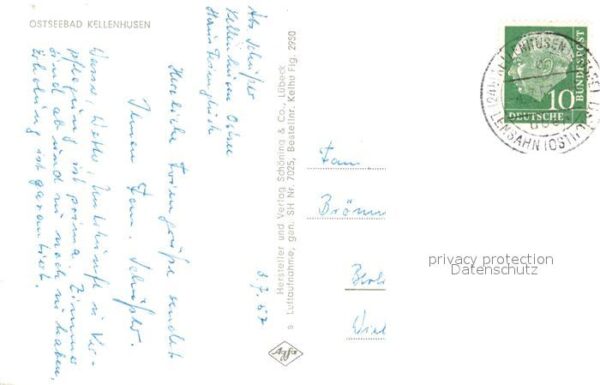 OSTSEEBAD KELLENHUSEN
Abs. Schüßler
Kellenhusen Ostsee
Haus
3.7.57
Herzliche Feriengrüße sendet
Ihnen Fam. Schüßler.
Wasser, Wetter, Unterkünfte u. Ver-
pflegung ist prima. Zimmer
sind ab und zu noch zu haben,
Erholung ist garantiert.
Hersteller und Verlag Schöning & Co., Lübeck
s. Luftaufnahme, gen. SH Nr. 7025, Bestellnr. Kelhu Fig. 2950
Agfa
10
DEUTSCHE
BUNDESPOST
(24b) KELLENHUSEN
LENSAHN (OSTHOLST)
Fam.
Brömm
Berli
privacy protection
Datenschutz